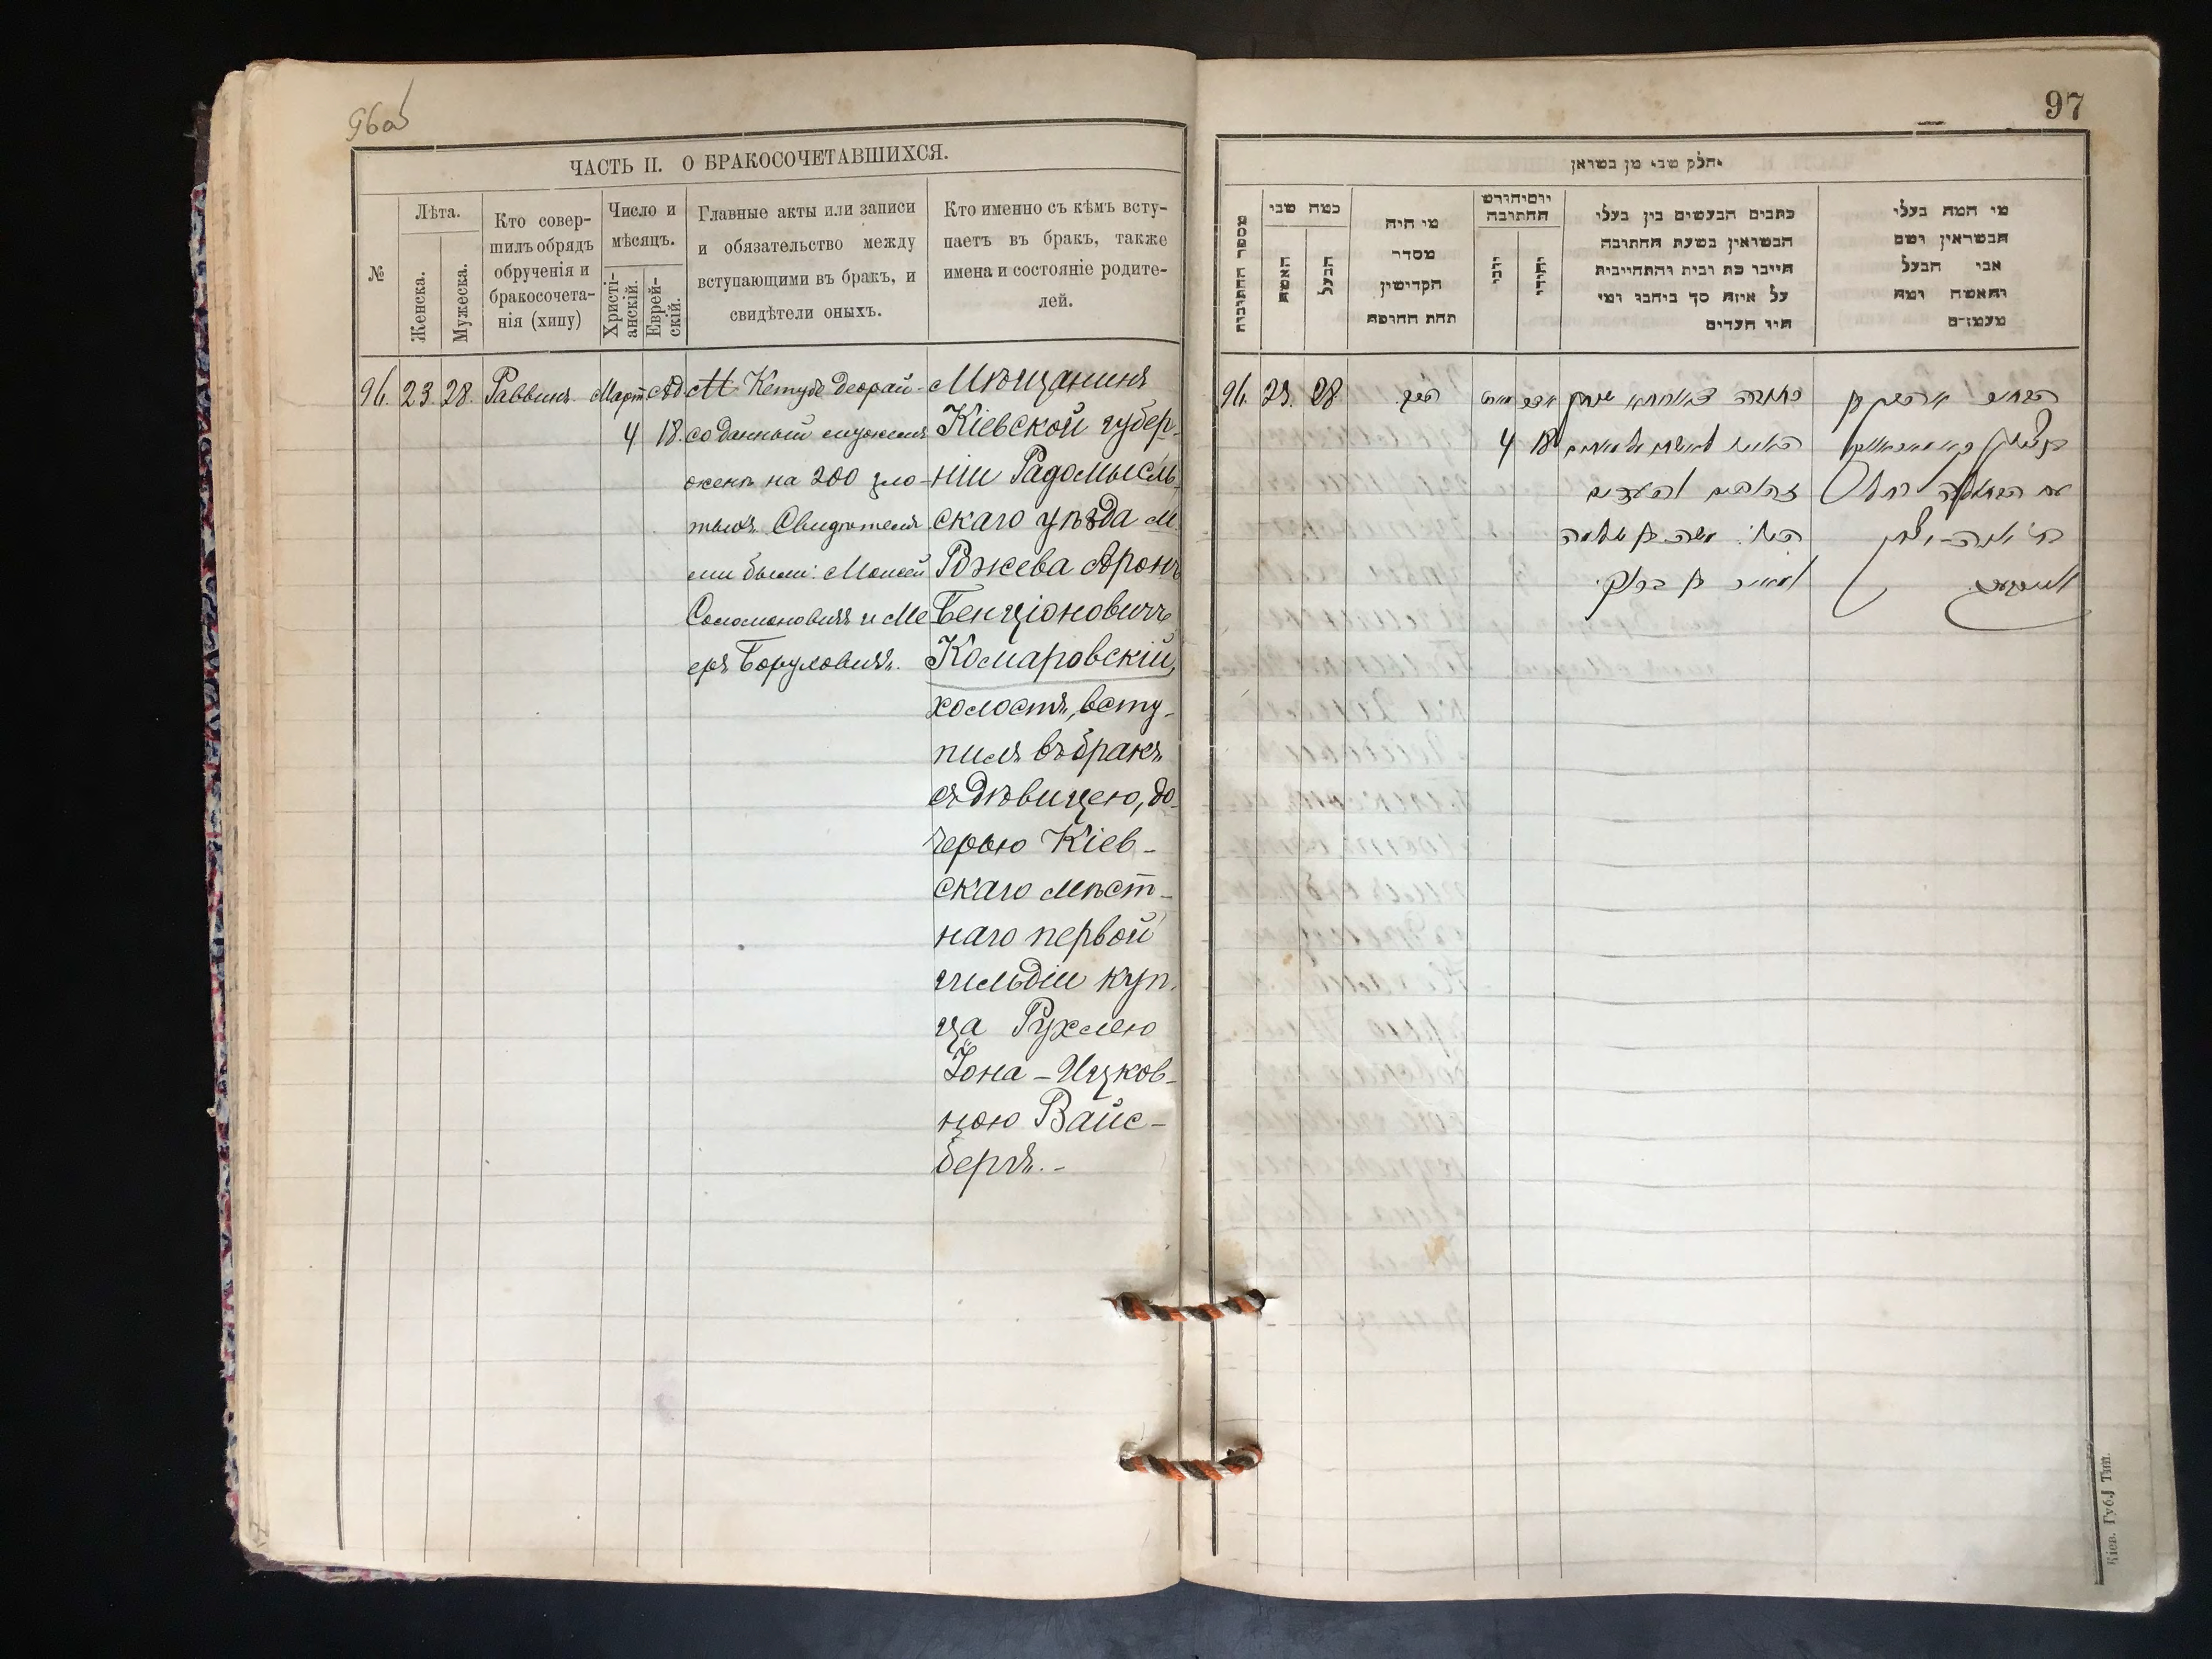 96об
ЧАСТЬ II. О БРАКОСОЧЕТАВШИХСЯ.
№
Лѣта.
Женска.
Мужеска.
Кто совер-
шилъ обрядъ
обрученія и
бракосочета-
нія (хипу)
Число и
мѣсяцъ.
Христі-
анскій.
Еврей-
скій.
Главные акты или записи
и обязательство между
вступающими въ бракъ, и
свидѣтели оныхъ.
Кто именно съ кѣмъ всту-
паетъ въ бракъ, также
имена и состояніе родите-
лей.
96. 23. 28. Раввинъ. Март. Ад.
4 18.
Кетубе деорай-
со данный мужемъ
женѣ на 200 зло-
тыхъ. Свидѣтеля
ми были: Моисей
Соломоновичъ и Ме
еръ Боруховичъ.
Мѣщанинъ
Кіевской губер-
ніи Радомысль-
скаго уѣзда м.
Рожева Аронъ
Бенціоновичъ
Комаровскій,
холостъ, всту-
пилъ въ бракъ
съ дѣвицею, до-
черью Кіев-
скаго мѣст-
наго первой
гильдіи куп-
ца Рухлею
Іона-Ицков-
ною Вайс-
бергъ.-
97
חלק שני מן נשואין
מספר החתונות
כמה שני
האשה
הבעל
מי היה
מסדר
הקדושין
תחת החופה
יום וחודש
החתונה
נוצרי
יהודי
כתבים הנעשים בין בעלי
הנשואין בשעת החתונה
חיובי כת ובית והתחייבות
על איזה סך ניתנו ומי
היו העדים
מי המה בעלי
הנשואין ושם
אבי הבעל
והאשה ומה
מעמדם
96. 23. 28. הרב.
4 18
כתובה דאורייתא
זהובים והעדים
משה בן שלמה
ומאיר בן ברוך.
הבחור אהרן בן
בן ציון קאמאראווסקי
עם הבתולה רחל
בת יונה-יצחק
ווייסבערג.
Кіев. Губ. Тип.